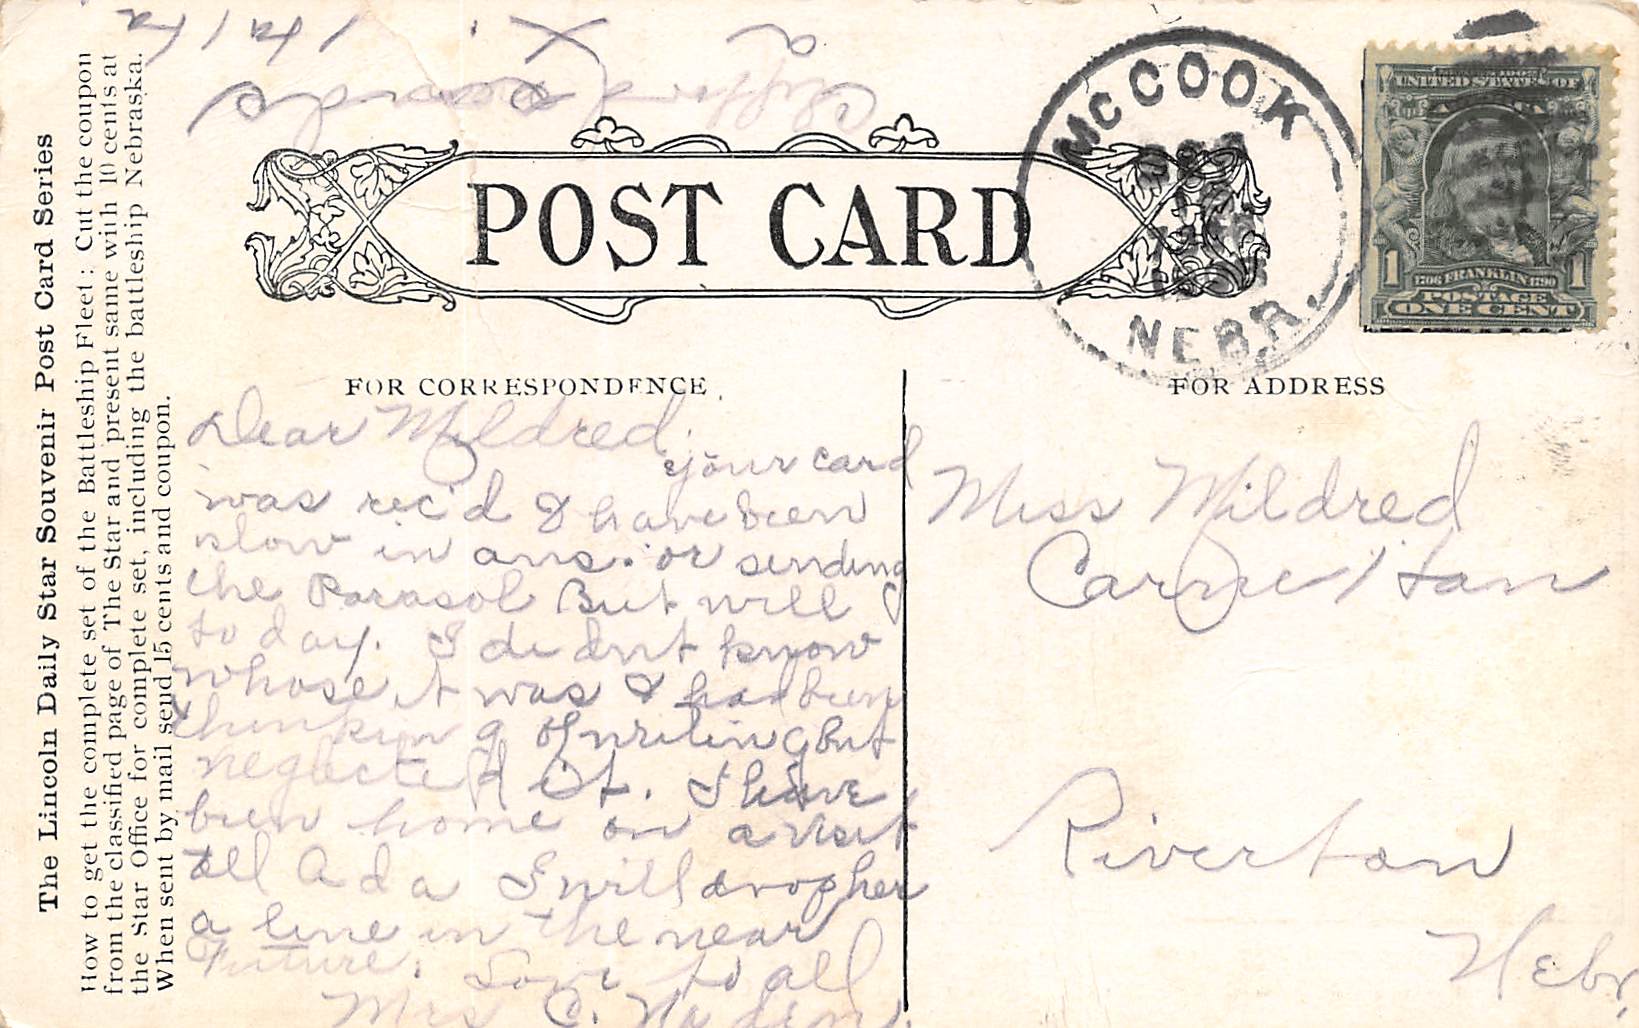 The Lincoln Daily Star Souvenir Post Card Series
How to get the complete set of the Battleship Fleet: Cut the coupon
from the classified page of The Star and present same with 10 cents at
the Star Office for complete set, including the battleship Nebraska.
When sent by mail send 15 cents and coupon.
POST CARD
McCOOK
NEBR.
UNITED STATES OF
AMERICA
1 1
1706 FRANKLIN 1790
POSTAGE
ONE CENT
FOR CORRESPONDENCE
Dear Mildred.
your card
was rec'd & have been
slow in ans. or sending
the Parasol But will
to day. I didnt know
whose it was & had been
thinking of writing but
neglected it. I have
been home on a visit
tell Ada I will drop her
a line in the near
Future. Love to all
Mrs C.
FOR ADDRESS
Miss Mildred
Riverton
Nebr.